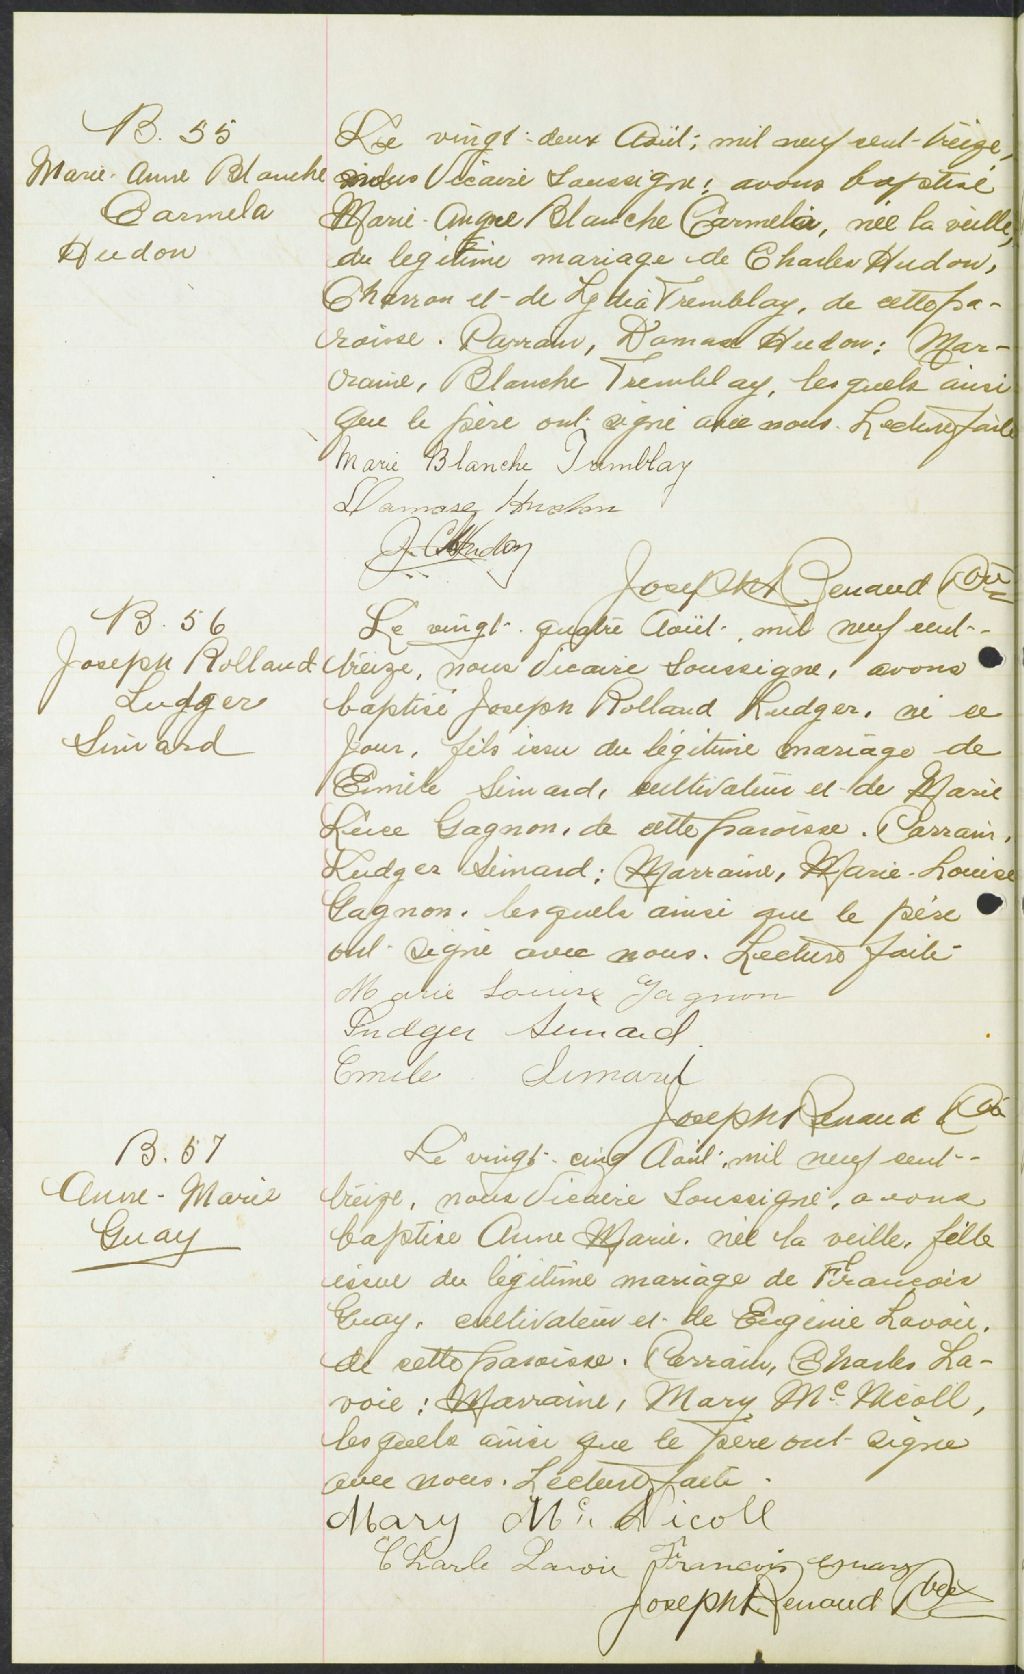 B. 55
Marie-Anne Blanche
Carmela
Hudon
Le vingt-deux Août, mil neuf cent-treize,
nous Vicaire Soussigné, avons baptisé
Marie-Anne Blanche Carmelia, née la veille,
du légitime mariage de Charles Hudon,
Charron et de Lydia Tremblay, de cette pa-
roisse. Parrain, Damase Hudon: Mar-
raine, Blanche Tremblay, lesquels ainsi
que le père ont signé avec nous. Lecture faite
Marie Blanche Tremblay
Damase Hudon
J. C. Hudon
Joseph Renaud Ptre
B. 56
Joseph Rolland
Ludger
Simard
Le vingt-quatre Août, mil neuf cent-
treize, nous Vicaire Soussigné, avons
baptisé Joseph Rolland Ludger, né ce
jour, fils issu du légitime mariage de
Emile Simard, cultivateur et de Marie
Luce Gagnon, de cette paroisse. Parrain,
Ludger Simard; Marraine, Marie-Louise
Gagnon, lesquels ainsi que le père
ont signé avec nous. Lecture faite
Marie Louise Gagnon
Ludger Simard
Emile Simard
Joseph Renaud
B. 57
Anne-Marie
Guay
Le vingt-cinq Août, mil neuf cent-
treize, nous Vicaire Soussigné, avons
baptisé Anne Marie, née la veille, fille
issue du légitime mariage de François
Guay, cultivateur et de Eugénie Lavoie,
de cette paroisse. Parrain, Charles La-
voie; Marraine, Mary Mc Nicoll,
lesquels ainsi que le père ont signé
avec nous. Lecture faite.
Mary Mc Nicoll
Charle Lavoie François Guay
Joseph Renaud